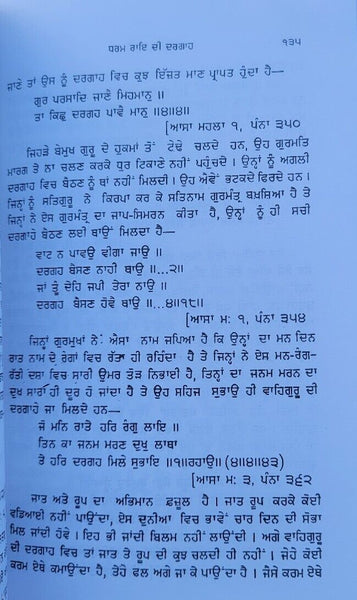 ਧਰਮ ਰਾਇ ਦੀ ਦਰਗਾਹ ੧੩੫
ਜਾਣੇ ਤਾਂ ਉਸ ਨੂੰ ਦਰਗਾਹ ਵਿਚ ਕੁਝ ਇੱਜ਼ਤ ਮਾਣ ਪ੍ਰਾਪਤ ਹੁੰਦਾ ਹੈ—
ਗੁਰ ਪਰਸਾਦਿ ਜਾਣੈ ਮਿਹਮਾਨੁ ॥
ਤਾ ਕਿਛੁ ਦਰਗਹ ਪਾਵੈ ਮਾਨੁ ॥੪॥੪॥
[ਆਸਾ ਮਹਲਾ ੧, ਪੰਨਾ ੩੫੦
ਜਿਹੜੇ ਬੇਮੁਖ ਗੁਰੂ ਦੇ ਹੁਕਮਾਂ ਤੋਂ ਟੇਢੇ ਚਲਦੇ ਹਨ, ਉਹ ਗੁਰਮਤਿ
ਮਾਰਗ ਤੇ ਨਾ ਚਲਣ ਕਰਕੇ ਧੁਰ ਟਿਕਾਣੇ ਨਹੀਂ ਪਹੁੰਚਦੇ । ਉਨ੍ਹਾਂ ਨੂੰ ਅਗਲੀ
ਦਰਗਾਹ ਵਿਚ ਬੈਠਣ ਨੂੰ ਥਾਂ ਨਹੀਂ ਮਿਲਦੀ । ਉਹ ਐਵੇਂ ਭਟਕਦੇ ਫਿਰਦੇ ਹਨ ।
ਜਿਨ੍ਹਾਂ ਨੂੰ ਸਤਿਗੁਰੂ ਨੇ ਕਿਰਪਾ ਕਰ ਕੇ ਸਤਿਨਾਮ ਗੁਰਮੰਤ੍ਰ ਬਖ਼ਸ਼ਿਆ ਹੈ ਤੇ
ਜਿਨ੍ਹਾਂ ਨੇ ਇਸ ਗੁਰਮੰਤ੍ਰ ਦਾ ਜਾਪ-ਸਿਮਰਨ ਕੀਤਾ ਹੈ, ਉਨ੍ਹਾਂ ਨੂੰ ਹੀ ਸਚੀ
ਦਰਗਾਹੇ ਬੈਠਣ ਲਈ ਥਾਉਂ ਮਿਲਦਾ ਹੈ—
ਵਾਟ ਨ ਪਾਵਉ ਵੀਗਾ ਜਾਉ ॥
ਦਰਗਹ ਬੈਸਣ ਨਾਹੀ ਥਾਉ ॥...੨॥
ਜਾਂ ਤੂੰ ਦੇਹਿ ਜਪੀ ਤੇਰਾ ਨਾਉ ॥
ਦਰਗਹ ਬੈਸਣ ਹੋਵੈ ਥਾਉ ॥...੪॥੧੮॥
[ਆਸਾ ਮ: ੧, ਪੰਨਾ ੩੫੪
ਜਿਨ੍ਹਾਂ ਗੁਰਮੁਖਾਂ ਨੇ ਐਸਾ ਨਾਮ ਜਪਿਆ ਹੈ ਕਿ ਉਨ੍ਹਾਂ ਦਾ ਮਨ ਦਿਨ
ਰਾਤ ਨਾਮ ਦੇ ਰੰਗਾਂ ਵਿਚ ਰੱਤਾ ਹੀ ਰਹਿੰਦਾ ਹੈ ਤੇ ਜਿਨ੍ਹਾਂ ਨੇ ਇਸ ਮਨ-ਰੰਗ-
ਰੱਤੀ ਦਸ਼ਾ ਵਿਚ ਸਾਰੀ ਉਮਰ ਤੋੜ ਨਿਭਾਈ ਹੈ, ਤਿਨ੍ਹਾਂ ਦਾ ਜਨਮ ਮਰਨ ਦਾ
ਦੁਖ ਸਾਰਾ ਹੀ ਦੂਰ ਹੋ ਜਾਂਦਾ ਹੈ ਤੇ ਉਹ ਸਹਿਜ ਸੁਭਾਉ ਹੀ ਵਾਹਿਗੁਰੂ ਦੀ
ਦਰਗਾਹੇ ਜਾ ਮਿਲਦੇ ਹਨ—
ਜੋ ਮਨਿ ਰਾਤੇ ਹਰਿ ਰੰਗੁ ਲਾਇ ॥
ਤਿਨ ਕਾ ਜਨਮ ਮਰਣ ਦੁਖੁ ਲਾਥਾ
ਤੇ ਹਰਿ ਦਰਗਹ ਮਿਲੇ ਸੁਭਾਇ ॥੧॥ਰਹਾਉ॥ (੪॥੪॥੪੩)
[ਆਸਾ ਮ: ੩, ਪੰਨਾ ੩੬੨
ਜਾਤ ਅਤੇ ਰੂਪ ਦਾ ਅਭਿਮਾਨ ਫਜ਼ੂਲ ਹੈ । ਜਾਤ ਰੂਪ ਕਰਕੇ ਕੋਈ
ਵਡਿਆਈ ਨਹੀਂ ਪਾਉਂਦਾ, ਏਸ ਦੁਨੀਆ ਵਿਚ ਭਾਵੇਂ ਚਾਰ ਦਿਨ ਦੀ ਸੋਭਾ
ਮਿਲ ਜਾਂਦੀ ਹੋਵੇ । ਇਹ ਭੀ ਜਾਂਦੀ ਬਿਲਮ ਨਹੀਂ ਲਾਉਂਦੀ । ਅਗੇ ਵਾਹਿਗੁਰੂ
ਦੀ ਦਰਗਾਹ ਵਿਚ ਤਾਂ ਜਾਤ ਤੇ ਰੂਪ ਦੀ ਕੁਝ ਚਲਦੀ ਹੀ ਨਹੀਂ । ਜੇਹੇ ਕੋਈ
ਕਰਮ ਏਥੇ ਕਮਾਉਂਦਾ ਹੈ, ਤੇਹੇ ਫਲ ਅਗੇ ਜਾ ਕੇ ਪਾਉਂਦਾ ਹੈ । ਜੈਸੇ ਕਰਮ ਏਥੇ